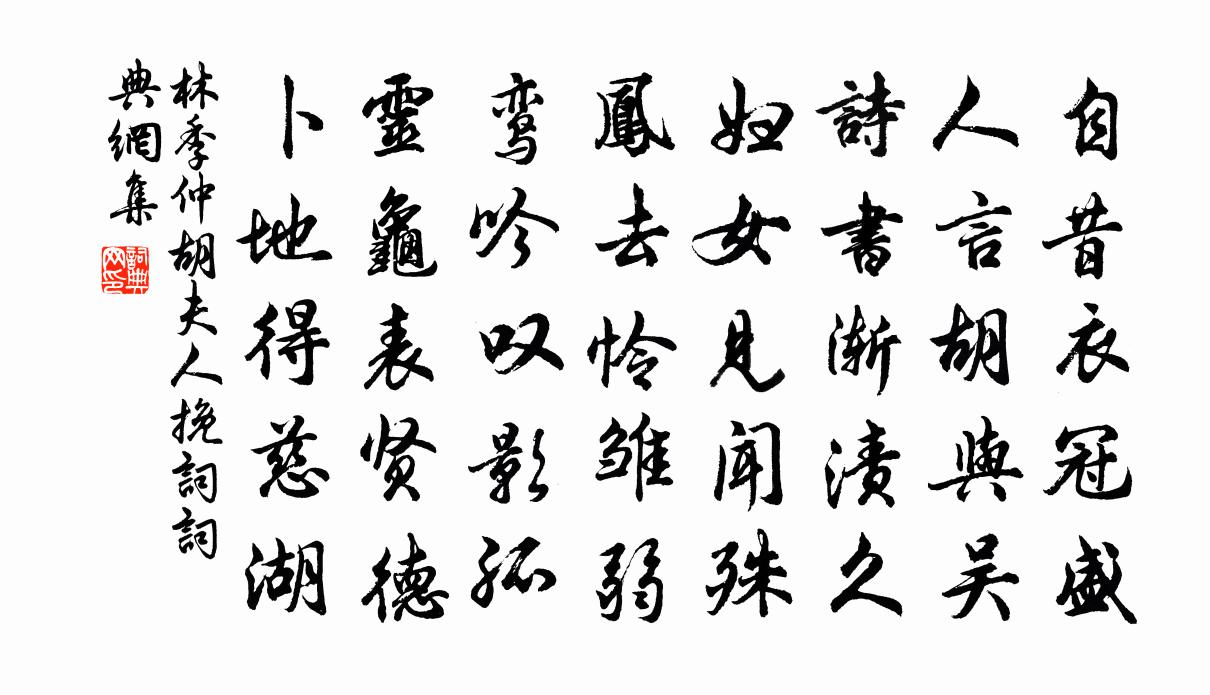 自昔衣冠盛
人言胡與吴
詩書渐漬久
妇女見聞殊
鳳去怜雏弱
鸾吟叹影孤
靈龜表贤德
卜地得慈湖
林季仲胡夫人挽詞詞
典網集
詞典
网印